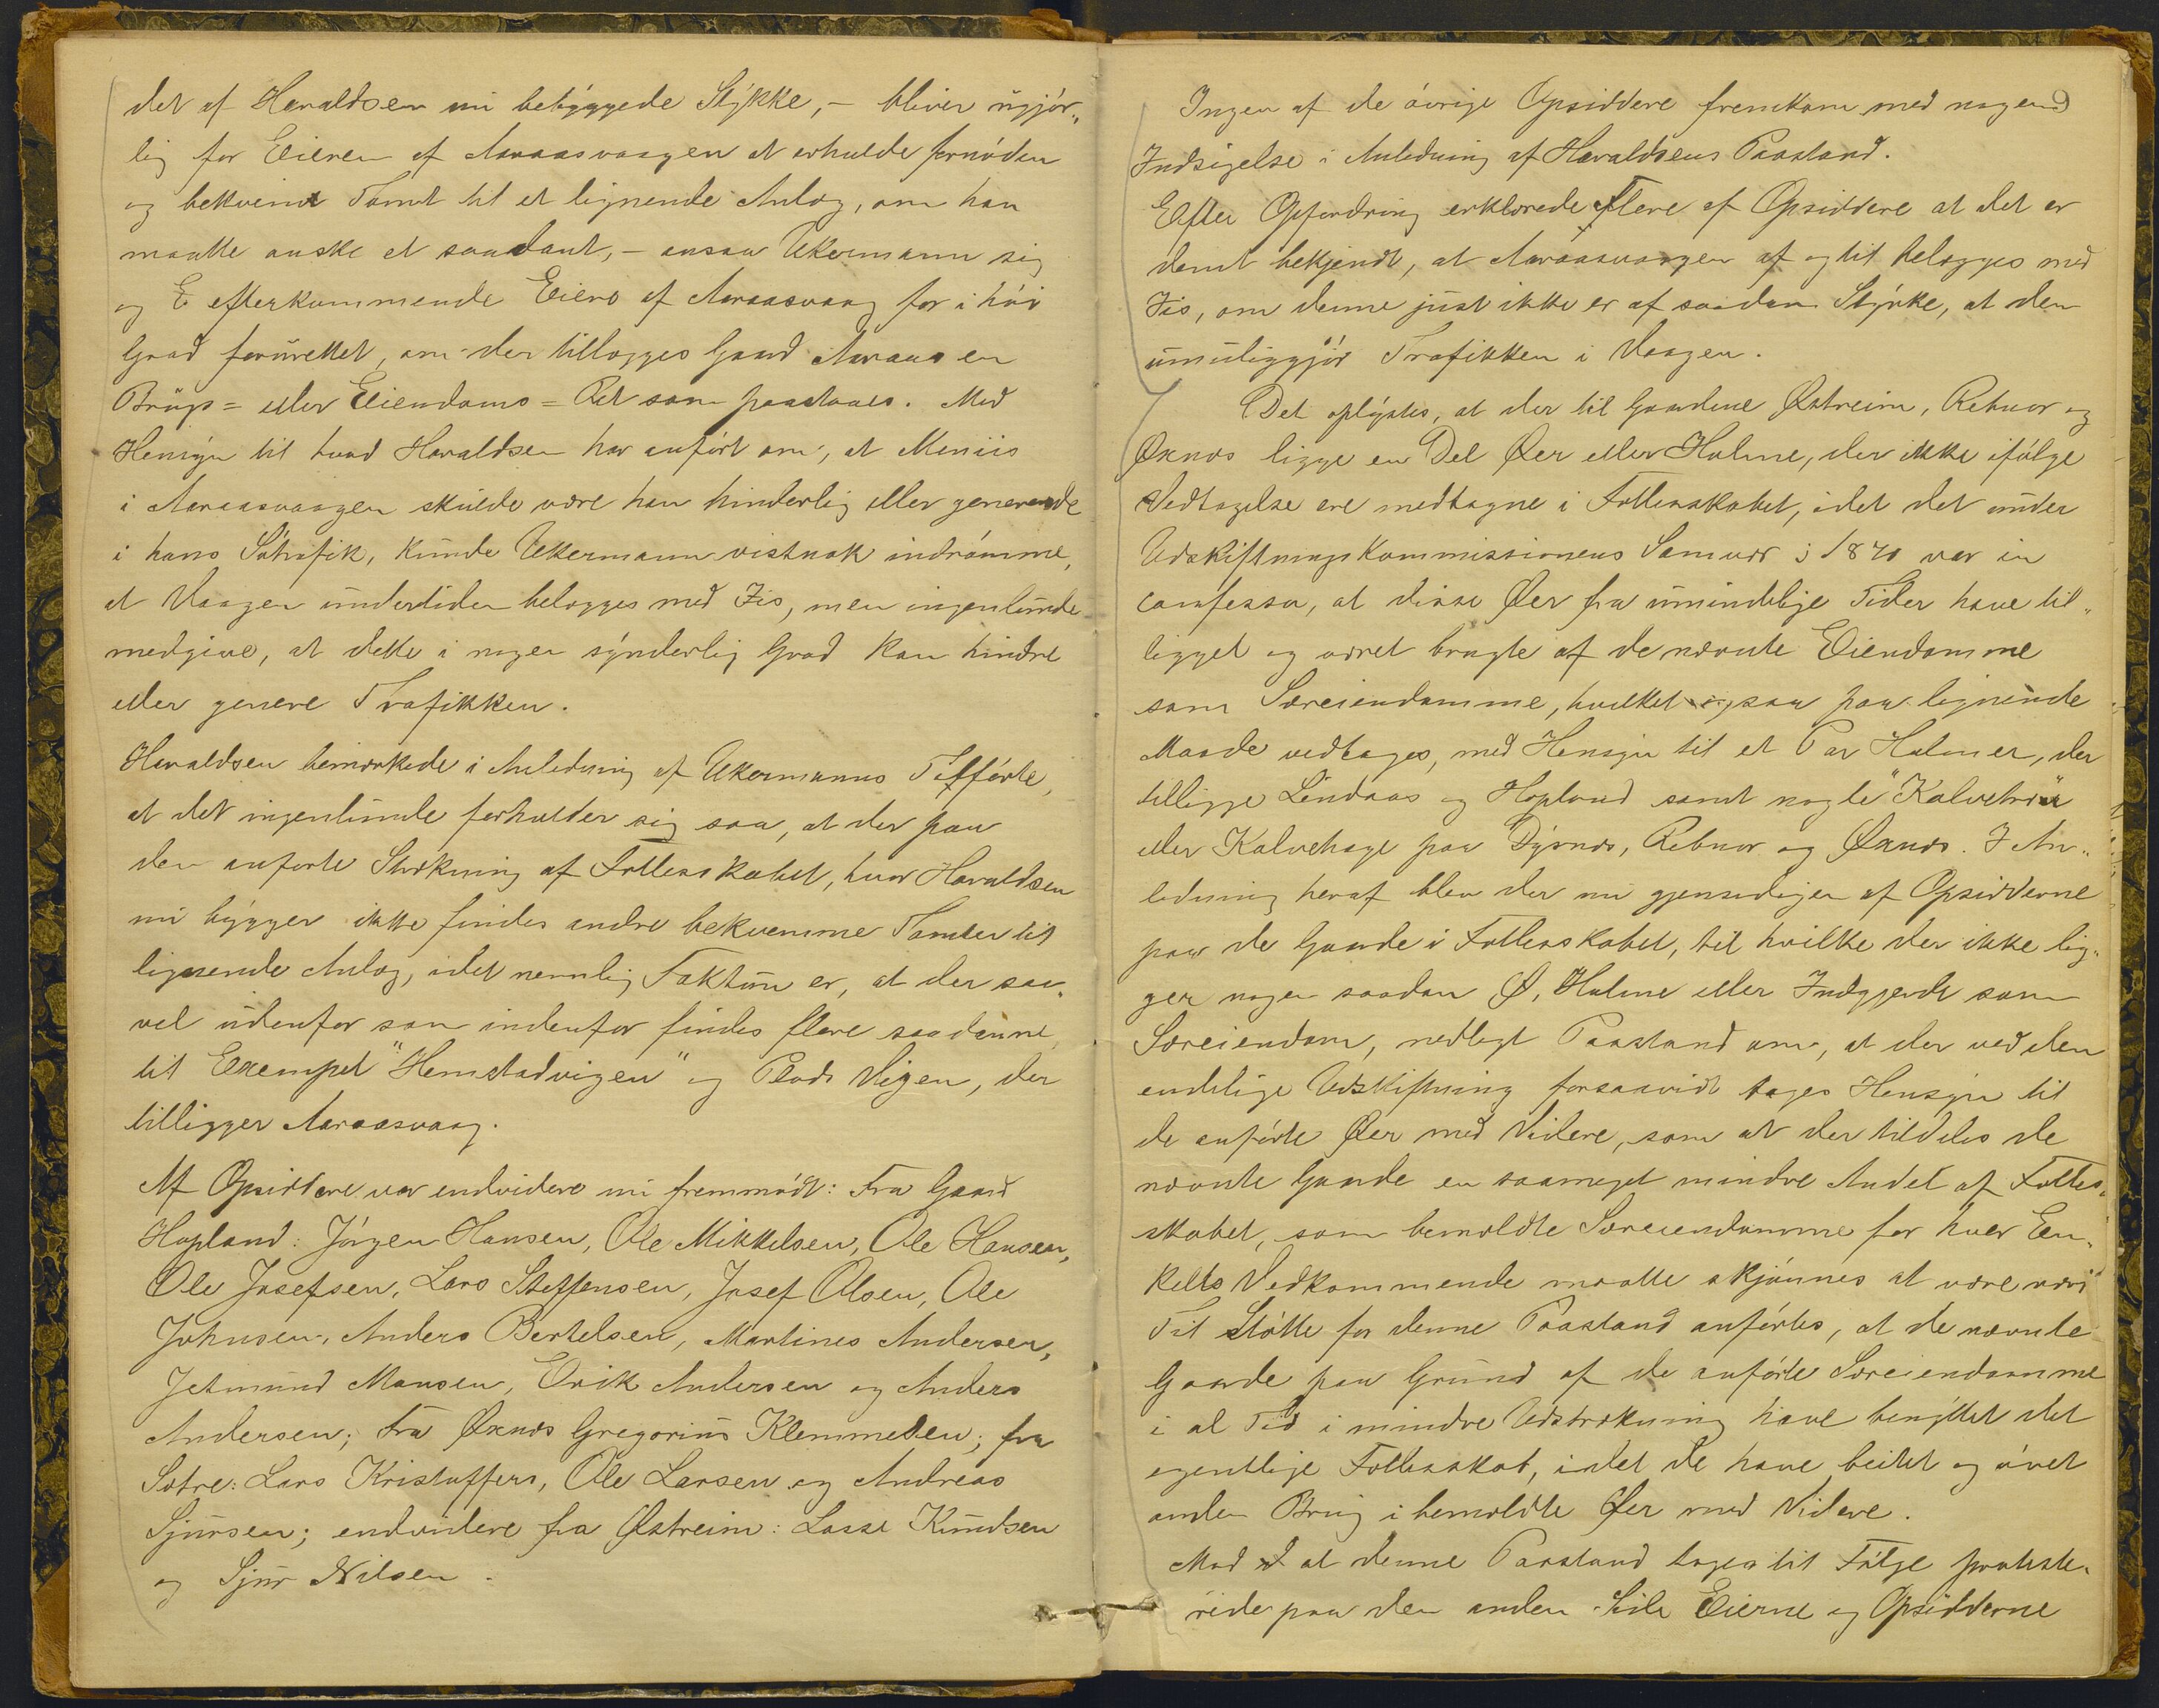 det af Haraldsen nu bebyggede Stykke, – bliver ugjör„
lig for Eieren af Aaraasvaagen at erholde fornöden
og bekvem Tomt til et lignende Anlæg, om han
maatte önske et saadant, – ansaa Ukermann sig
og E efterkommende Eiere af Aaraasvaag for i höi
Grad forurettet, om der tillægges Gaard Aaraas en
Brugs= eller Eiendoms=Ret som paastaaes. Med
Hensyn til hvad Haraldsen har anfört om, at Meniis
i Aaraasvaagen skulde være han hinderlig eller generende
i hans Sötrafik, kunde Ukermann vistnok indrömme,
at Vaagen undertiden belægges med Iis, men ingenlunde
medgive, at dette i nogen synderlig Grad kan hindre
eller genere Trafikken.
Haraldsen bemærkede i Anledning af Ukermanns Tilförte,
at det ingenlunde forholder sig saa, at der paa
den anförte Strækning af Fællesskabet, hvor Haraldsen
nu bygger ikke findes andre bekvemme Tomter til
lignende Anlæg, idet nemlig Faktum er, at der saa„
vel udenfor som indenfor findes flere saadanne,
til Exempel "Hemstadvigen" og Vigen, der
tilligger Aaraasvaag.
Af Opsiddere var endvidere nu fremmödt: Fra Gaard
Hopland: Jörgen Hansen, Ole Mikkelsen, Ole Hansen,
Ole Josefsen, Lars Steffensen, Josef Olsen, Ole
Johnsen, Anders Bertelsen, Martines Andersen,
Jetmund Monsen, Erik Andersen og Anders
Andersen; fra Øxnæs Gregorius Klemmetsen; fra
Sætre: Lars Kristoffers, Ole Larsen og Andreas
Sjursen; endvidere fra Østreim: Lasse Knudsen
og Sjur Nilsen.
9
Ingen af de övrige Opsiddere fremkom med nogen
Indsigelse i Anledning af Haraldsens Paastand.
Efter Opfordring erklærede Flere af Opsiddere at det er
dem bekjendt, at Aaraasvaagen af og til belægges med
Iis, om denne just ikke er af saadan Styrke, at den
umuliggjör Trafikken i Vaagen.
Det oplystes, at der til Gaardene Østreim, Rebnor og
Øxnæs ligge en Del Øer eller Holme, der ikke ifölge
Vedtagelse ere medtagne i Fællesskabet, idet det under
Udskiftningskommissionens Samvær i 1870 var in
confesso, at disse Øer fra umindelige Tider have til„
ligget og været brugte af de nævnte Eiendomme
som Særeiendomme, hvilket ogsaa paa lignende
Maade vedtages, med Hensyn til et Par Holmer, der
tilligge Lindaas og Hopland samt nogle "Kalvetræ"
eller Kalvehage paa Dyrnæs, Rebnor og Øxnæs. I An„
ledning heraf blev der nu gjensidigen af Opsidderne
paa de Gaarde i Fællesskabet, til hvilke der ikke lig„
ger nogen saadan Ø, Holme eller Indgjerde som
Særeiendom, nedlagt Paastand om, at der ved den
endelige Udskiftning forsaavidt tages Hensyn til
de anförte Øer med Videre, som at der tildeles de
nævnte Gaarde en saameget mindre Andel af Fælles„
skabet, som bemældte Særeiendomme for hver En„
kelts Vedkommende maatte skjönnes at være værd
Til Stötte for denne Paastand anförtes, at de nævnte
Gaarde paa Grund af de anförte Særeiendomme
i al Tid i mindre Udstrækning have benyttet det
egentlige Fællesskab, idet de have beitet og övet
anden Brug i bemældte Øer med Videre.
Mod at denne Paastand tages til Fölge proteste„
rede paa den anden Side Eierne og Opsidderne